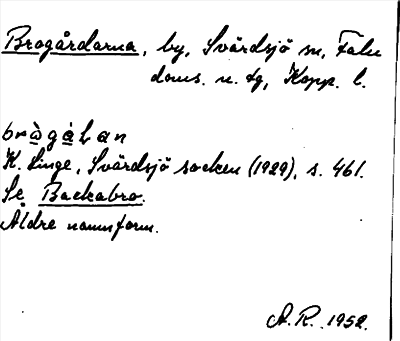 Brogårdarna, by, Svärdsjö sn, Falu
doms. n. tg, Kopp. l.
bràgàLan
K. Linge, Svärdsjö socken (1929), s. 461.
Se Backabro.
Äldre namnform.
A. R. 1952.